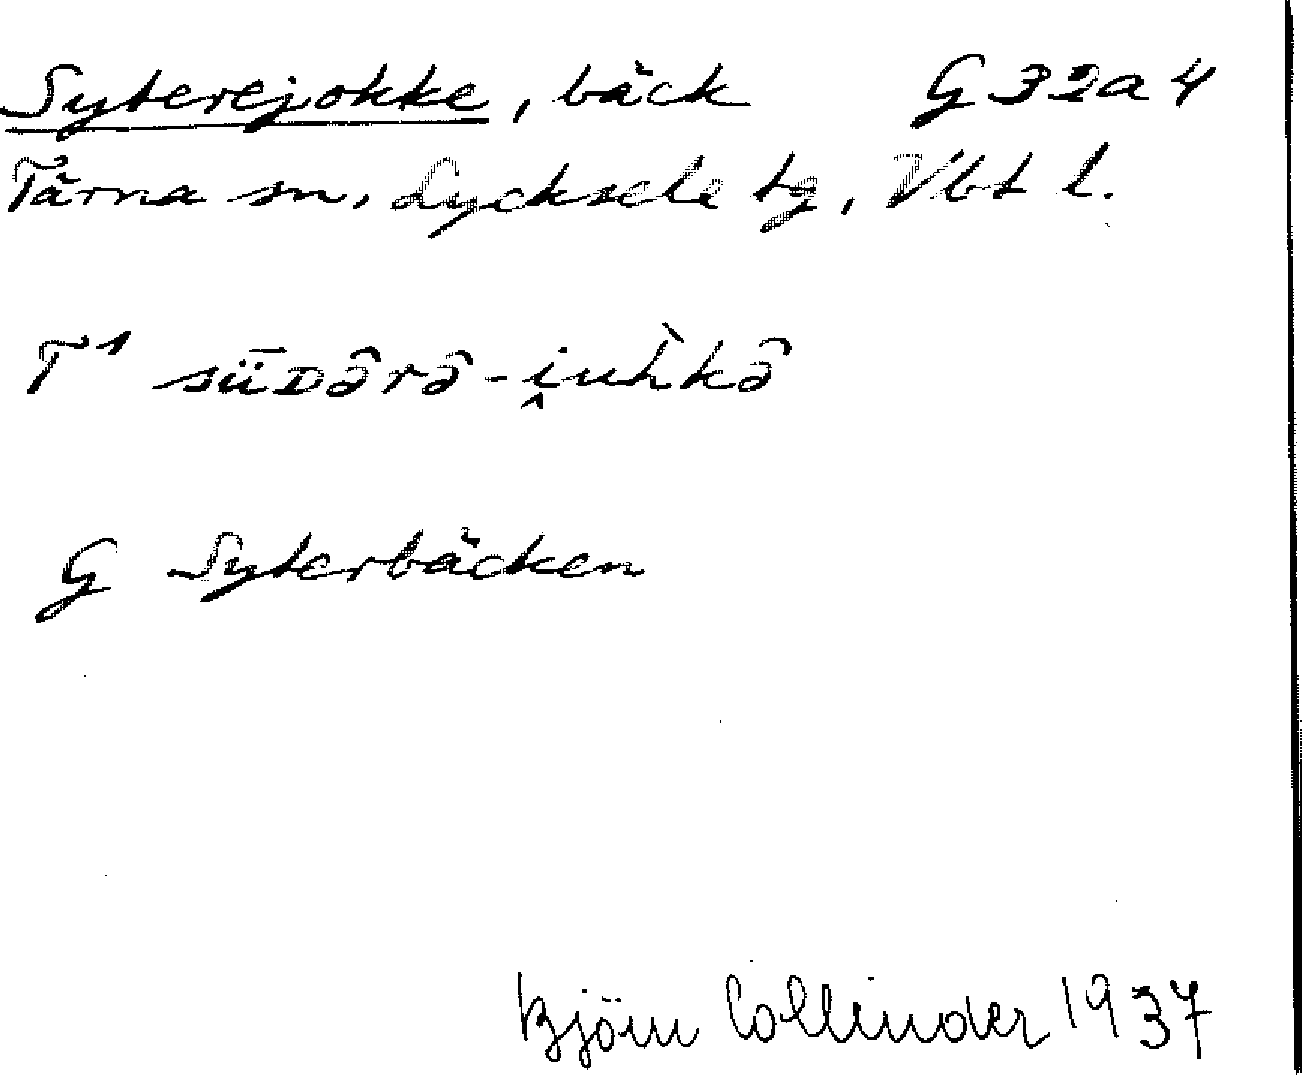 Syterejokke, bäck G32a4
Tärna sn, Lycksele tg, Vbt l.
T¹ sǖᴅə̂rə̂-i̭uh̀kə̂
G Syterbäcken
Björn Collinder 1937